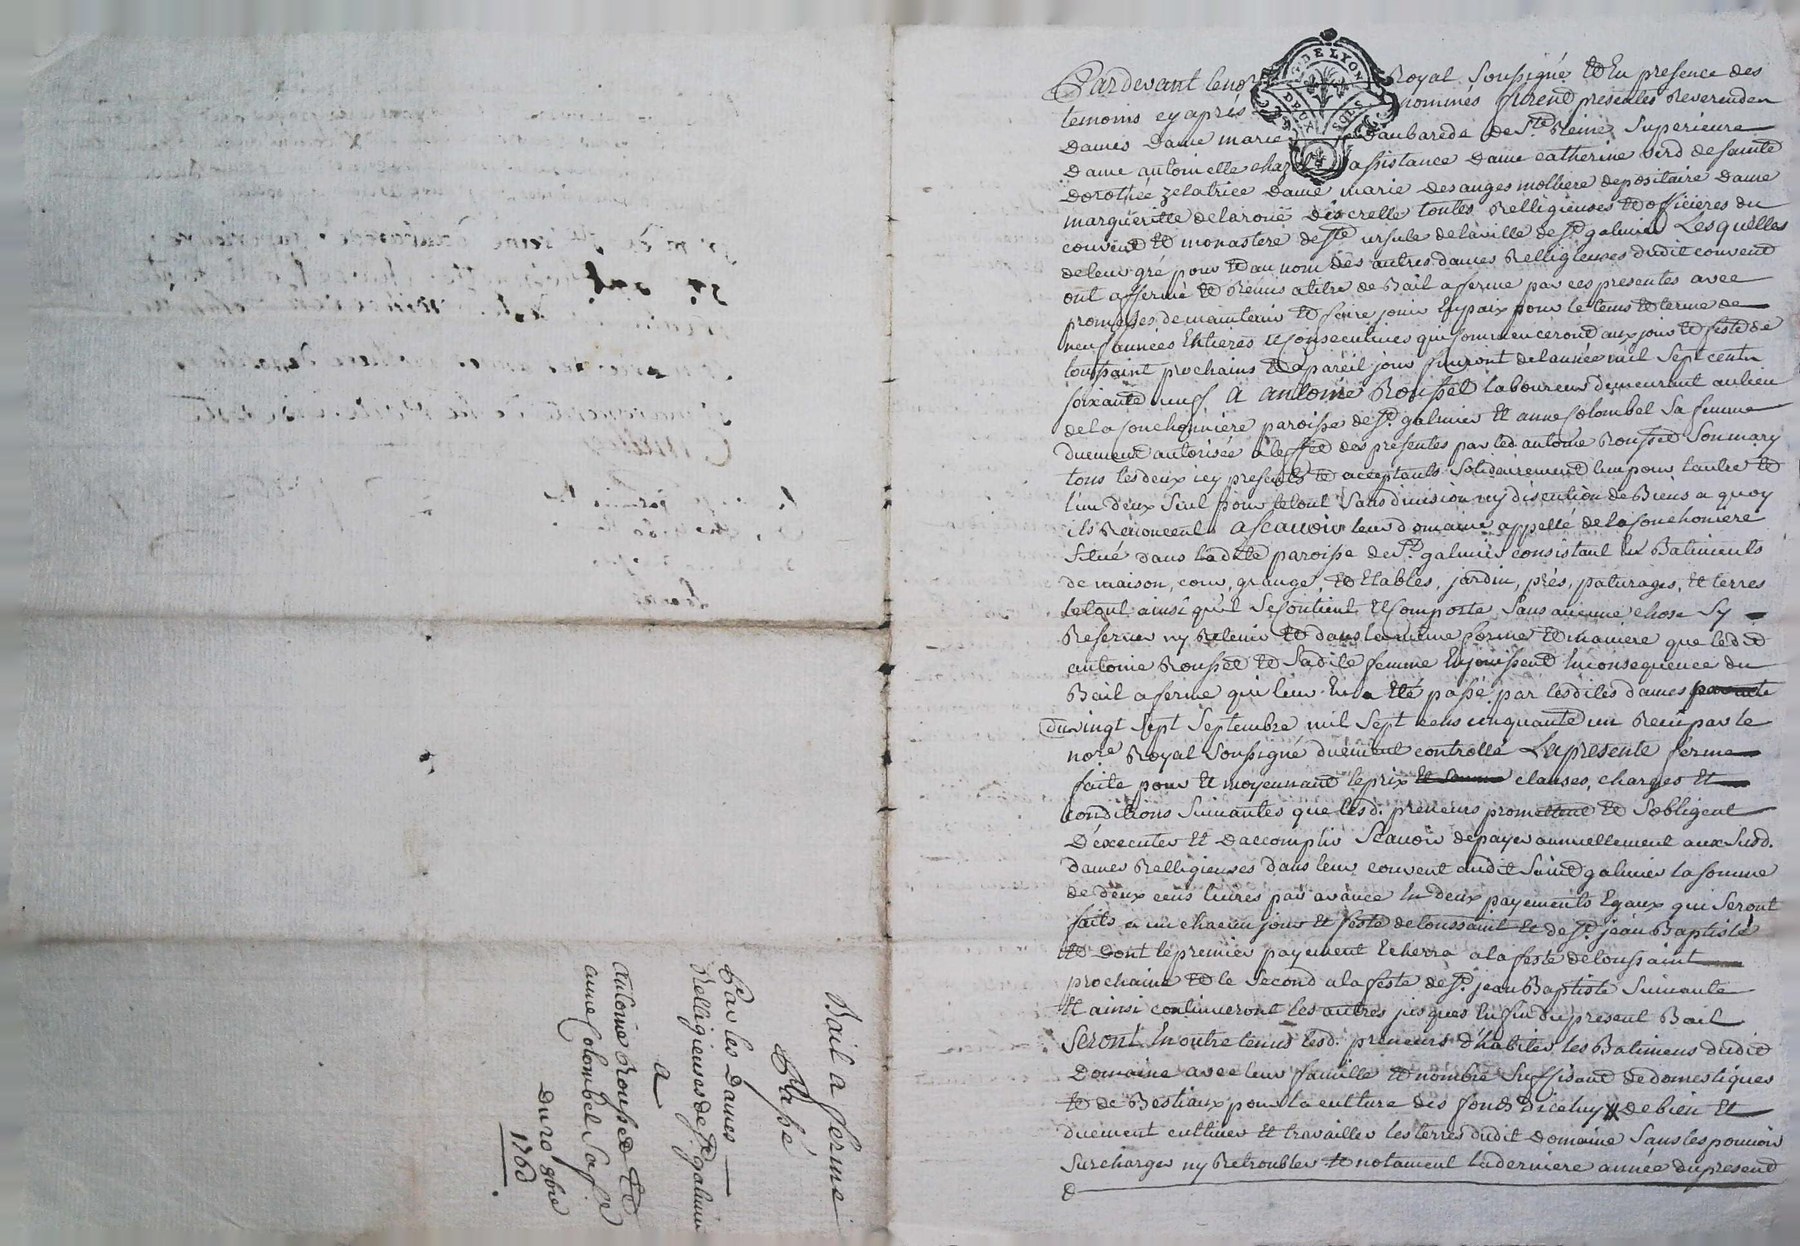 Bail a ferme
Passé
Par les Dames
Relligieuses de St galmier
a
antoine Rousset Et
anne Colombel Sa fe
Du 10 8bre
1760
DE LYON
DEUX SOLS
Pardevant le no Royal Soussigné Et En presence des
temoins cy aprés nommés furent presentes Reverenden
Dames Dame marie Daubarede de Ste Reine Superieure
Dame antoinette chaz assistance Dame catherine verd de sainte
Dorothée zelatrice Dame marie des anges molliere depositaire Dame
margueritte de la roüe Discrette toutes Relligieuses Et officieres du
couvent Et monastere de Ste ursule de la ville de St galmier Lesquelles
de leur gré pour Et au nom des autres dames Relligieuses dudit couvent
ont affermé Et Remis a titre de Bail a ferme par ces presentes avec
promesses de maintenir Et faire jouir En paix pour le tems Et terme de
neuf années Entieres Et Consecutives qui Commenceront aux jour Et feste de
toussaint prochains Et a pareil jour finiront de l'année mil Sept centn
soixante neuf A antoine Rousset laboureur demeurant au lieu
de la fonchonniere paroisse de St galmier Et anne Colombel Sa femme
Duement autorisée a l'effet des presentes par led. antoine Rousset Son mary
tous les deux icy presents Et acceptants Solidairement l'un pour l'autre Et
l'un deux Seul pour le tout Sans division ny discution de Biens a quoy
ils Renoncent Ascavoir leur domaine appellé de la fonchoniere
Situé dans ladite paroisse de St galmier consistant En Batiments
de maison, cour, grange, Et Etables, jardin, prés, paturages, Et terres
le tout ainsi qu'il Se Contient Et Comporte, Sans aucune chose Sy
Reserver ny Retenir Et dans la même forme Et maniere que ledit
antoine Rousset Et Sadite femme En jouissent En consequence du
Bail a ferme qui leur En a Eté passé par lesdites dames
du vingt Sept Septembre mil Sept cens cinquante un Recu par le
nore Royal Soussigné duement controllé La presente ferme
faite pour Et moyennant le prix clauses, charges Et
Conditions Suivantes que lesd. preneurs promettent Et S'obligent
D'executer Et D'accomplir Scavoir de payer annuellement aux Susd.
dames Relligieuses dans leur couvent audit Saint galmier la somme
de deux cens livres par avance En deux payements Egaux qui Seront
faits a un chacun jour Et feste de toussaint Et de St jean Baptiste
Et Dont le premier payement Echerra a la feste de toussaint
prochaine Et le Second a la feste de St jean Baptiste Suivante
Et ainsi continueront les autres jusques En fin du present Bail
Seront En outre tenus lesd. preneurs d'habiter les Batimens dudit
Domaine avec leur famille Et nombre Suffisant de domestiques
Et de Bestiaux pour la culture des fonds Diceluy de bien Et
duement cultiver Et travailler les terres dudit Domaine Sans les pouvoir
Surcharger ny Retroubler Et notament la derniere année du present